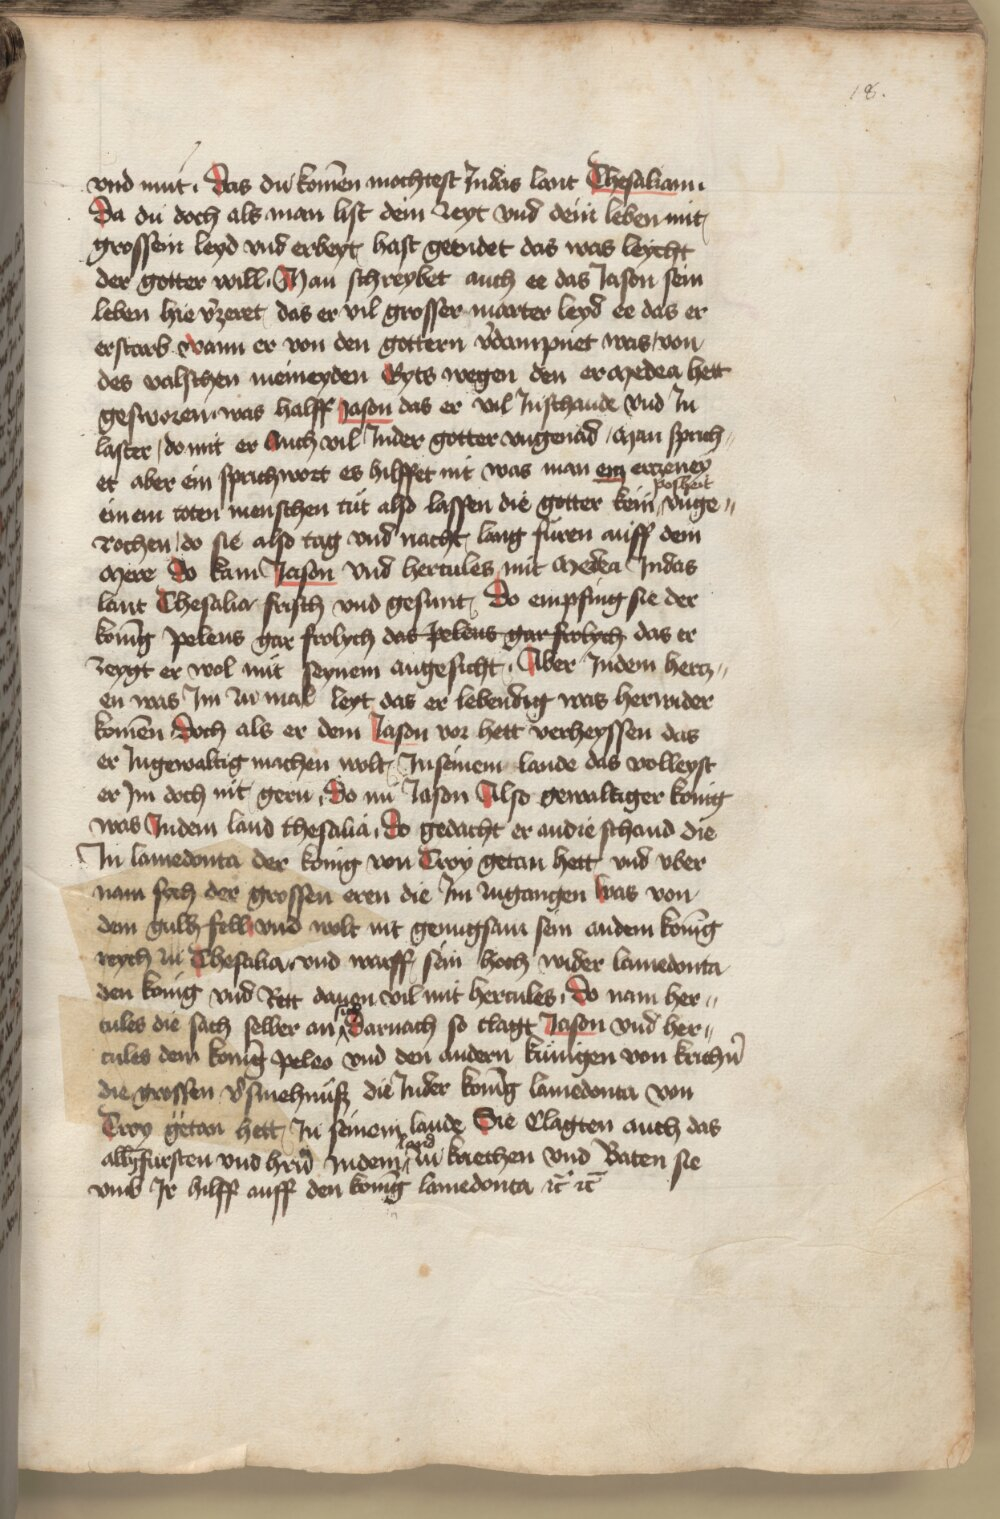 18.
vnd mut. Das du komen mochtest Indas lant Thesaliam.
Da du doch als man list dein zeyt vnd dein leben mit
grossem leyd vnd erbeyt hast geendet das was leycht
der gotter will. Man schreybet auch ee das Jason sein
leben hie vzeret das er vil grosser marter leyd ee das er
erstarb wann er von den gottern vdampnet was von
des valschen meineyden Eyts wegen den er Medea hett
gesworen. was halff Jason das er vil Inschande vnd In
laster do mit er Auch vil Inder gotter vngenad Man sprich„
et aber ein sprichwort es hilffet nit was man ertzeney
einem toten menschen tut also lassen die gotter kein posheit vnge„
rochen do sie also tag vnd nacht lang furen auff dem
Mere Do kam Jason vnd hercules mit Medea Indas
lant Thesalia frisch vnd gesunt. Do empfing sie der
konig Peleus gar frolych das Peleus gar frolych das er
zeygt er wol mit seynem angesicht. Aber Indem hertz„
en was Im zu mal leyt das er lebendig was herwider
komen Doch als er dem Jason vor hett verheyssen das
er Ingewaltig machen wolt Inseinem lande das volleyst
er Im doch nit gern. Do nu Jason Also gewaltiger konig
was Indem land thesalia. do gedacht er andie schand die
In lamedonta der konig von Troy getan hett vnd vber
nam sych der grossen eren die Im zugangen was von
dem guld fell vnd wolt nit genugsam sein andem konig
reych zu Thesalia. vnd warff sein hoch wider lamedonta
den konig vnd Rett dauon vil mit hercules. Do nam her„
cules die sach selber an Darnach so clagt Jason vnd her„
cules dem konig peleo vnd den andern kunigen von krichn
die grossen vsmehnuß die Inder konig lamedonta von
Troy getan hett In seinem lande Sie Clagten auch das
allen fursten vnd hrn Indem land zu kriechen vnd Baten sie
vmb Ir hilff auff den konig lamedonta etc etc